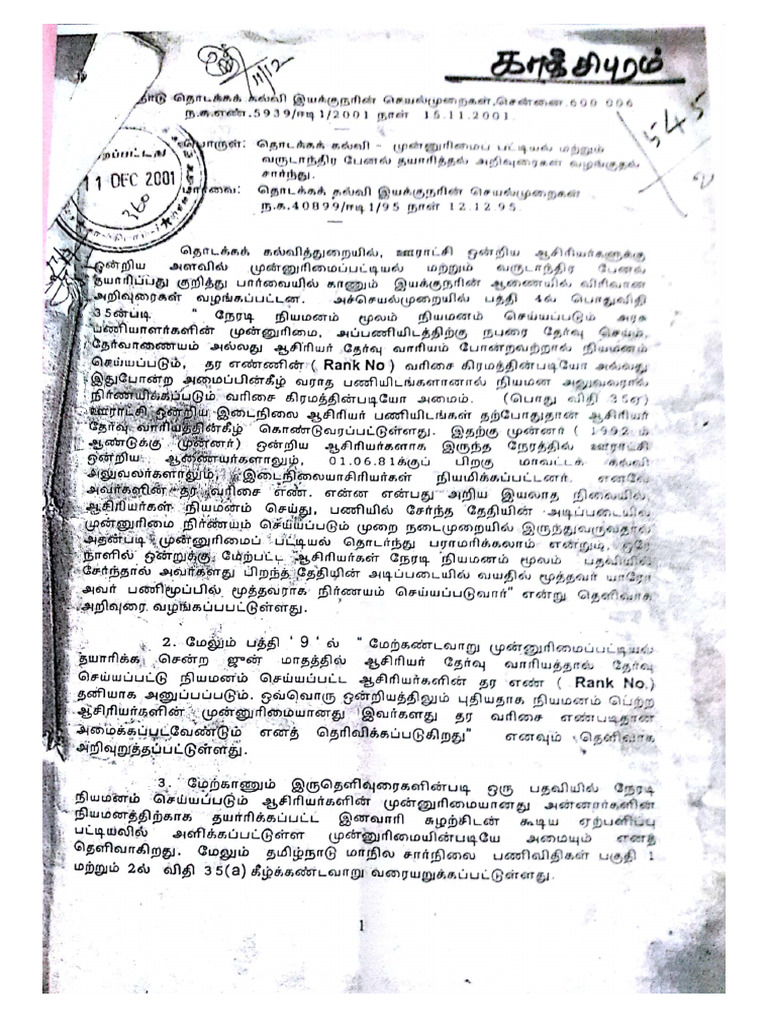 காஞ்சிபுரம்
11/12
நாடு தொடக்கக் கல்வி இயக்குநரின் செயல்முறைகள்,சென்னை.600 006
ந.க.எண்.5939/ஈடி1/2001 நாள் 15.11.2001.
545
பொருள்: தொடக்கக் கல்வி - முன்னுரிமைப் பட்டியல் மற்றும்
வருடாந்திர பேனல் தயாரித்தல் அறிவுரைகள் வழங்குதல்
சார்ந்து.
11 DEC 2001
பார்வை: தொடக்கக் கல்வி இயக்குநரின் செயல்முறைகள்
ந.க.40899/ஈடி1/95 நாள் 12.12.95.
தொடக்கக் கல்வித்துறையில், ஊராட்சி ஒன்றிய ஆசிரியர்களுக்கு
ஒன்றிய அளவில் முன்னுரிமைப்பட்டியல் மற்றும் வருடாந்திர பேனல்
தயாரிப்பது குறித்து பார்வையில் காணும் இயக்குநரின் ஆணையில் விரிவான
அறிவுரைகள் வழங்கப்பட்டன. அச்செயல்முறையில் பத்தி 4ல் பொதுவிதி
35ன்படி " நேரடி நியமனம் மூலம் நியமனம் செய்யப்படும் அரசு
பணியாளர்களின் முன்னுரிமை, அப்பணியிடத்திற்கு நபரை தேர்வு செய்யும்,
தேர்வாணையம் அல்லது ஆசிரியர் தேர்வு வாரியம் போன்றவற்றால் நியமனம்
செய்யப்படும், தர எண்ணின் ( Rank No ) வரிசை கிரமத்தின்படியோ அல்லது
இதுபோன்ற அமைப்பின்கீழ் வராத பணியிடங்களானால் நியமன அலுவலரால்
நிர்ணயிக்கப்படும் வரிசை கிரமத்தின்படியோ அமையும். (பொது விதி 35ஏ)
ஊராட்சி ஒன்றிய இடைநிலை ஆசிரியர் பணியிடங்கள் தற்போதுதான் ஆசிரியர்
தேர்வு வாரியத்தின்கீழ் கொண்டுவரப்பட்டுள்ளது. இதற்கு முன்னர் ( 1992 ம்
ஆண்டுக்கு முன்னர்) ஒன்றிய ஆசிரியர்களாக இருந்த நேரத்தில் ஊராட்சி
ஒன்றிய ஆணையர்களாலும், 01.06.81க்குப் பிறகு மாவட்டக் கல்வி
அலுவலர்களாலும், இடைநிலையாசிரியர்கள் நியமிக்கப்பட்டனர். எனவே
அவர்களின் தர வரிசை எண். என்ன என்பது அறிய இயலாத நிலையில்
ஆசிரியர்கள் நியமனம் செய்து, பணியில் சேர்ந்த தேதியின் அடிப்படையில்
முன்னுரிமை நிர்ணயம் செய்யப்படும் முறை நடைமுறையில் இருந்துவருவதால்
அதன்படி முன்னுரிமைப் பட்டியல் தொடர்ந்து பராமரிக்கலாம் என்றும், ஒரே
நாளில் ஒன்றுக்கு மேற்பட்ட ஆசிரியர்கள் நேரடி நியமனம் மூலம் பதவியில்
சேர்ந்தால் அவர்களது பிறந்த தேதியின் அடிப்படையில் வயதில் மூத்தவர் யாரோ
அவர் பணிமூப்பில் மூத்தவராக நிர்ணயம் செய்யப்படுவார்" என்று தெளிவாக
அறிவுரை வழங்கப்பபட்டுள்ளது.
2. மேலும் பத்தி '9' ல் " மேற்கண்டவாறு முன்னுரிமைப்பட்டியல்
தயாரிக்க சென்ற ஜுன் மாதத்தில் ஆசிரியர் தேர்வு வாரியத்தால் தேர்வு
செய்யப்பட்டு நியமனம் செய்யப்பட்ட ஆசிரியர்களின் தர எண் ( Rank No.)
தனியாக அனுப்பப்படும். ஒவ்வொரு ஒன்றியத்திலும் புதியதாக நியமனம் பெற்ற
ஆசிரியர்களின் முன்னுரிமையானது 'இவர்களது தர வரிசை எண்படிதான்
அமைக்கப்படவேண்டும் எனத் தெரிவிக்கப்படுகிறது" எனவும் தெளிவாக
அறிவுறுத்தப்பட்டுள்ளது.
3. மேற்காணும் இருதெளிவுரைகளின்படி ஒரு பதவியில் நேரடி
நியமனம் செய்யப்படும் ஆசிரியர்களின் முன்னுரிமையானது அன்னார்களின்
நியமனத்திற்காக தயார்ரிக்கப்பட்ட இனவாரி சுழற்சிடன் கூடிய ஏற்பளிப்பு
பட்டியலில் அளிக்கப்பட்டுள்ள முன்னுரிமையின்படியே அமையும் எனத்
தெளிவாகிறது. மேலும் தமிழ்நாடு மாநில சார்நிலை பணிவிதிகள் பகுதி 1
மற்றும் 2ல் விதி 35(a) கீழ்க்கண்டவாறு வரையறுக்கப்பட்டுள்ளது.
1